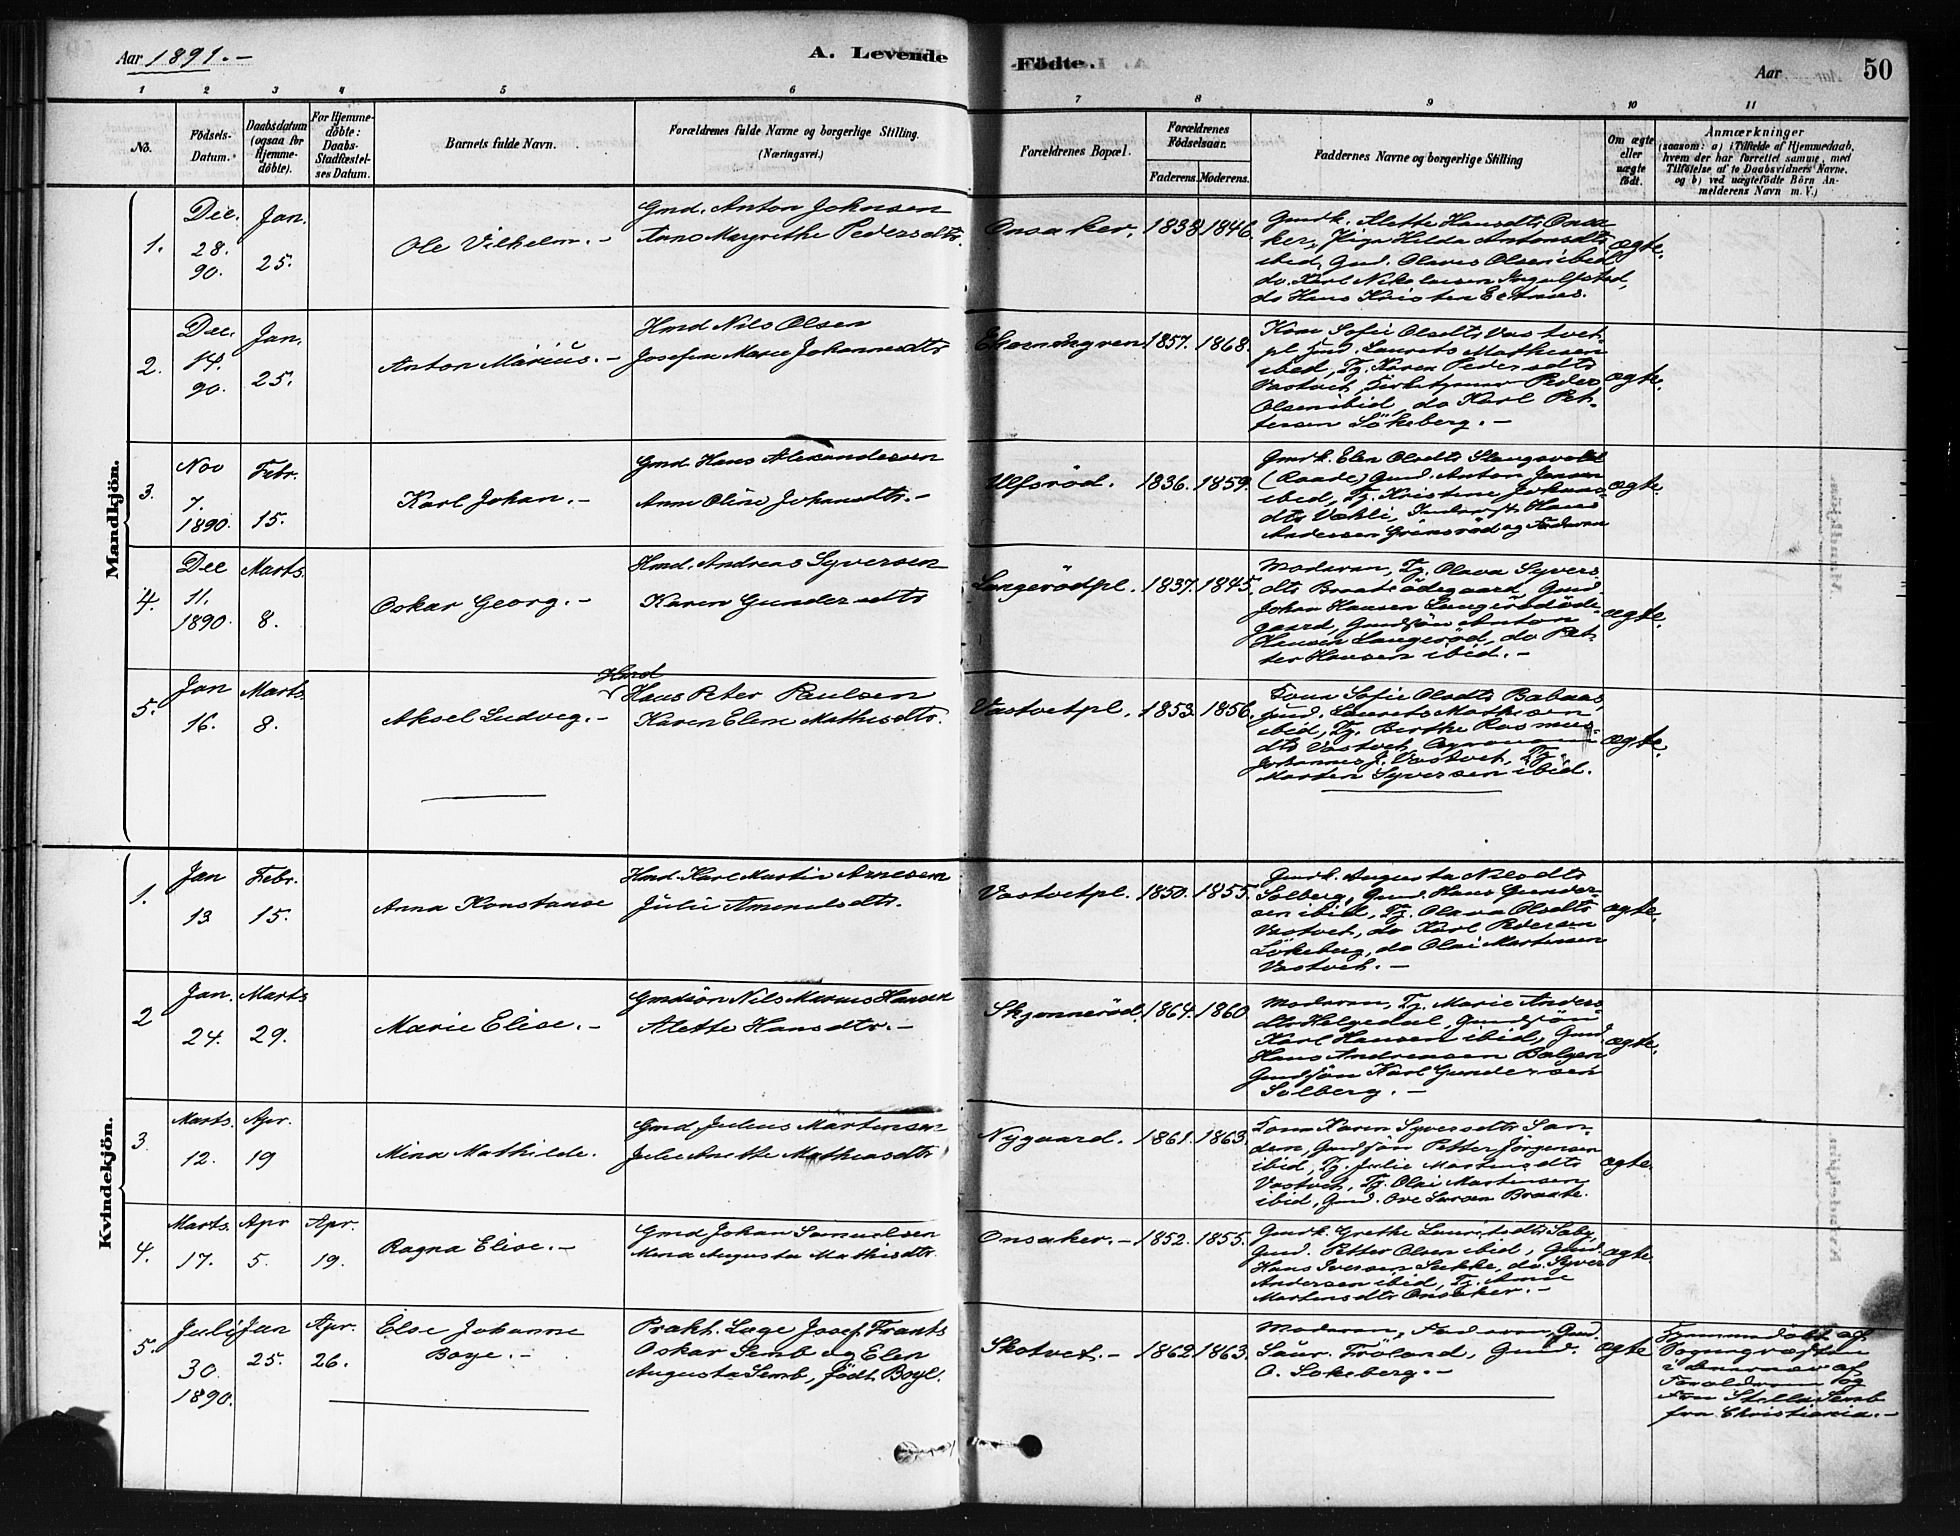 Aar 1891.-
A. Levende
Födte.
Aar
50
1 2 3 4 5 6 7 8 9 10 11
No.
Födsels-
Datum.
Daabsdatum
(ogsaa for
Hjemme-
döbte).
For Hjemme-
döbte:
Daabs-
Stadfæstel-
ses Datum.
Barnets fulde Navn.
Forældrenes fulde Navne og borgerlige Stilling.
(Næringsvei.)
Forældrenes Bopæl.
Forældrenes
Födselsaar.
Faderens. Moderens.
Faddernes Navne og borgerlige Stilling
Om ægte
eller
uægte
födt.
Anmærkninger
(saasom: a) i Tilfælde af Hjemmedaab,
hvem der har forrettet samme, med
Tilföielse af to Daabsvidners Navne,
og b) ved uægtefödte Börn An-
melderens Navn m. V.)
Mandkjön.
1.
Dec.
28.
90.
Jan.
25.
Ole Vilhelm.-
Gmd. Anton Johnsen
Anne Margrethe Pedersdtr.
Onsaker.
1838 1846.
Gmdk. Alette Hansdtr. Onsa
ker, Pige Hilda Antonsdtr
ibid, Gmd. Olaves Olsen ibid
do. Karl Nikolaisen Ingulfstad,
do Hans Kristen
ægte.
2.
Dec.
14.
90.
Jan.
25.
Anton Marius.-
Hmd Nils Olsen
Josefine Marie Johannesdtr
1857. 1868.
Kone Sofie Olsdtr Vastvet-
pl. Gmd. Laurits Mathisen
ibid, Tj. Karen Pedersdtr
Vastvet, Peder
Olsen ibid, do Karl Pet-
tersen Lökeberg.-
ægte.
3.
Nov
7.
1890.
Febr.
15.
Karl Johan.-
Gmd Hans Alexandersen
Anne Oline Johansdtr.-
Ulfsröd.
1836. 1859.
Gmdk. Elen Olsdtr Slangsvold
(Raade) Gmd. Anton Jensen
ibid, Tj. Kristine Johans-
dtr Vahli, Hans
Andersen Grimsröd og Faderen
ægte.
4.
Dec
11.
1890.
Marts.
8.
Oskar Georg.-
Hmd. Andreas Syversen
Karen Gundersdtr
Langerödpl.
1837. 1845.
Moderen, Tj. Olava Syvers
dtr Braatödegaard, Gmd
Johan Hansen Langerödöde-
gaard, Gmdsön Anton
Hansen Langeröd, do Pet-
ter Hansen ibid.-
ægte.
5.
Jan
16.
Marts.
8.
Aksel Ludvig.-
Hmd
Hans Peter Paulsen
Karen Eline Mathisdtr.
Vastvetpl.
1853. 1856.
Kone Sofie Olsdtr Babaas,
Gmd. Laurets Mathisen
ibid, Tj. Berthe Rasmus-
dtr Vastvet,
Johannes J. Vastvet, Tj.
Morten Syversen ibid.
ægte.
Kvindekjön.
1.
Jan
13
Febr.
15.
Anna Konstanse
Hmd. Karl Martin Arnesen
Julie Amundsdtr.
Vastvetpl.
1850. 1855.
Gmdk. Augusta Nilsdtr
Solberg, Gmd. Hans Gunder-
sen ibid, Tj. Olava Olsdtr
Vastvet, do Karl Pedersen
Lökeberg, do Olai Martinsen
Vastvet.-
ægte.
2
Jan.
24.
Marts
29.
Marie Elise.-
Gmdsön Nils Marius Hansen
Alette Hansdtr.-
Skjönneröd.
1864. 1860
Moderen, Tj. Marie Anders
dtr Helgedal, Gmdsjön
Karl Hansen ibid, Gmd
Hans Andreasen Bolgen
Gmdsjön Karl Gundersen
Solberg.-
ægte.
3
Marts.
12.
Apr.
19
Mina Mathilde.
Gmd Julius Martinsen
Julie Anette Mathiasdtr
Nygaard.
1861. 1863.
Kone Karen Syversdtr San-
den, Gmdsjön Petter Jörgensen
ibid, Tj. Julie Martinsdtr
Vastvet, Tj. Olai Martensen
ibid, Gmd. Ove Larsen Braate.
ægte.
4.
Marts.
17.
Apr
5.
Apr.
19.
Ragna Elise.-
Gmd Johan Samuelsen
Mina Augusta Mathisdtr.
Onsaker.-
1852. 1855.
Gmdk. Grethe Lauritsdtr Saby,
Gmd. Petter Olsen ibid, Gmd.
Hans Iversen Sække, do. Syver
Andersen ibid, Tj. Anne
Martinsdtr Onsaker.-
ægte.
5.
Juli
30.
1890.
Jan
25.
Apr.
26.
Else Johanne
Boye.-
Prakt. Læge Josef Frants
Oskar Semb og Elen
Augusta Semb, födt Boye.
Skotvet.-
1862 1863.
Moderen, Faderen, Gmd.
Laur. Fröland, Gmd.
O. Lökeberg.-
ægte
Hjemmedöbt af
Sognepræsten
i Nærvær af
Forældrene og
Frn Stella Semb
fra Christiania.-